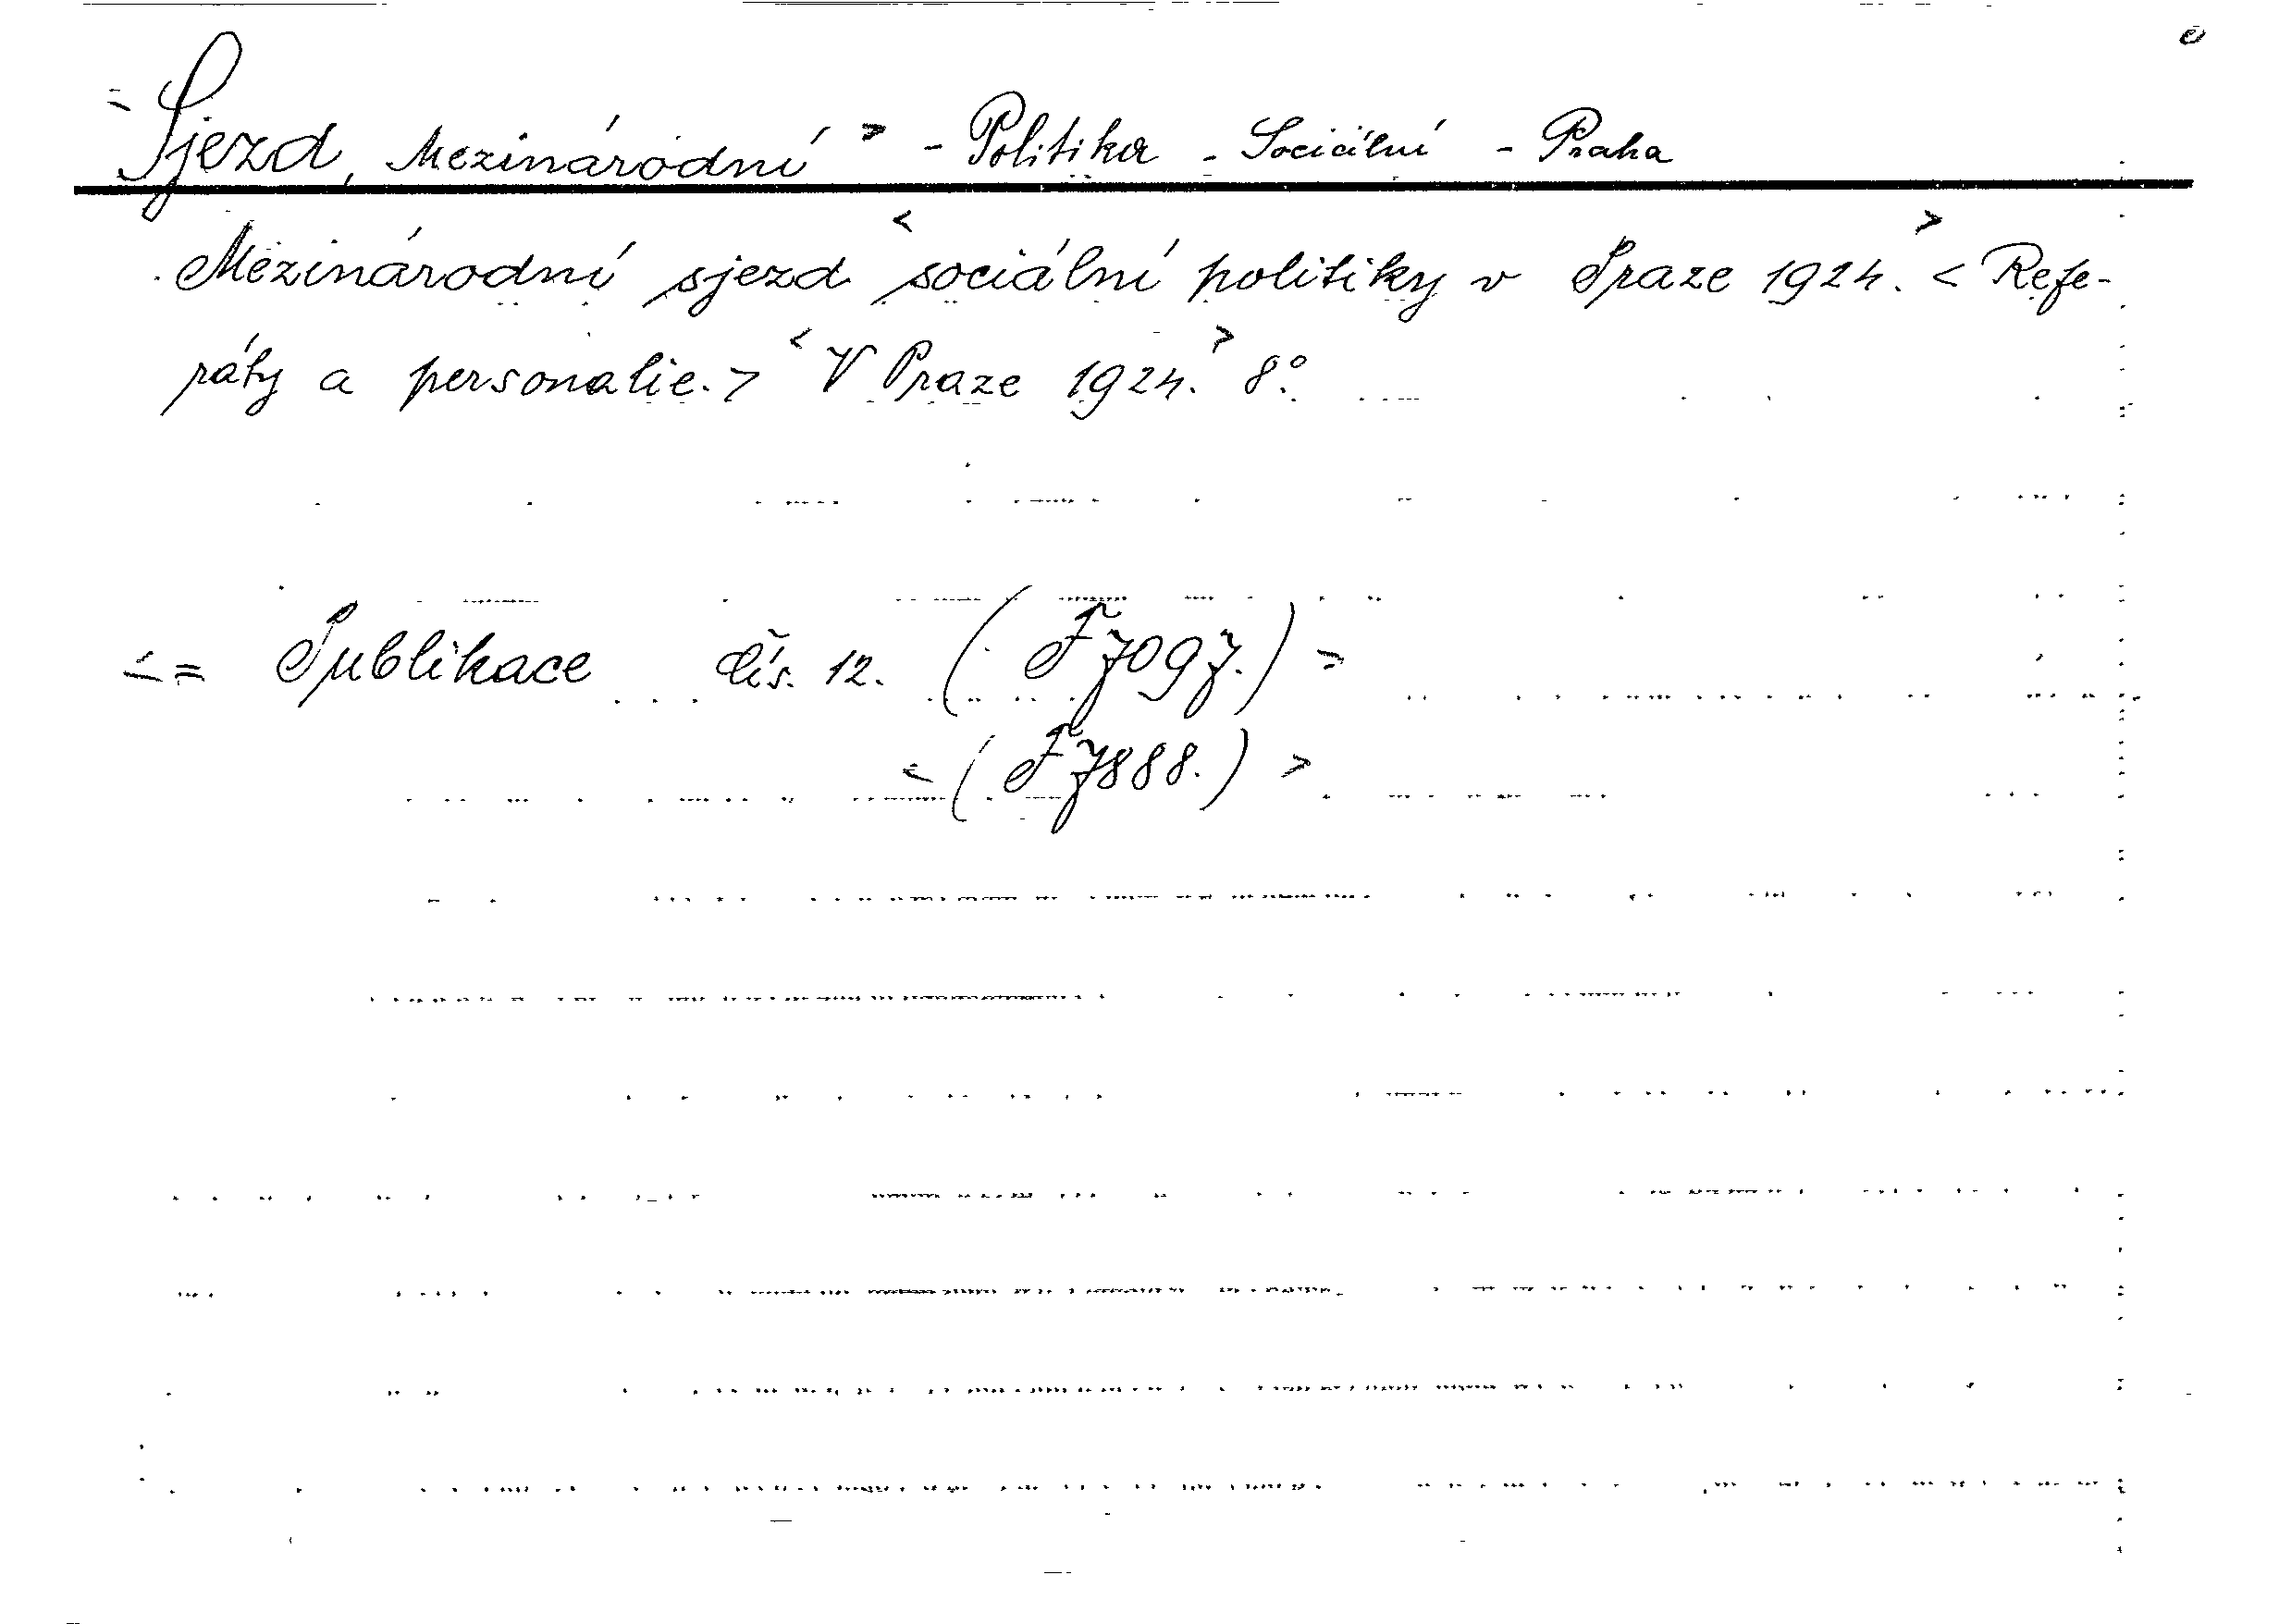 Sjezd, Mezinárodní > - Politika - Sociální - Praha
Mezinárodní sjezd < sociální politiky v Praze 1924. > < Refe-
ráty a personalie. > < V Praze 1924. > 8°.
< = Publikace čís. 12. (F 7097.) =
< (F 7888.) >